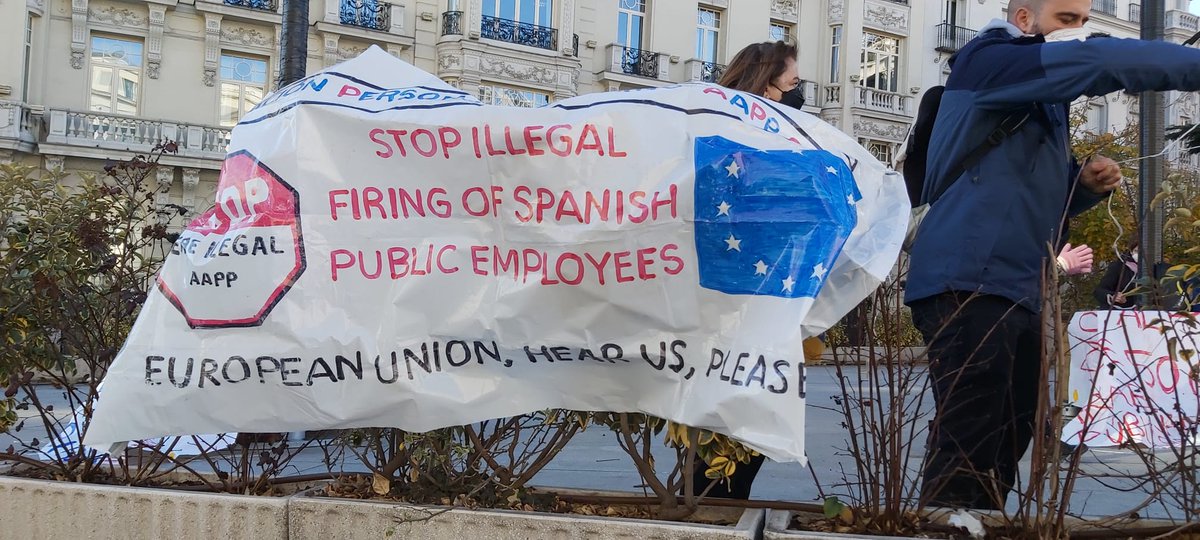 PERSON
AAPP
STOP ILLEGAL
FIRING OF SPANISH
PUBLIC EMPLOYEES
ERE ILEGAL
AAPP
EUROPEAN UNION, HEAR US, PLEASE